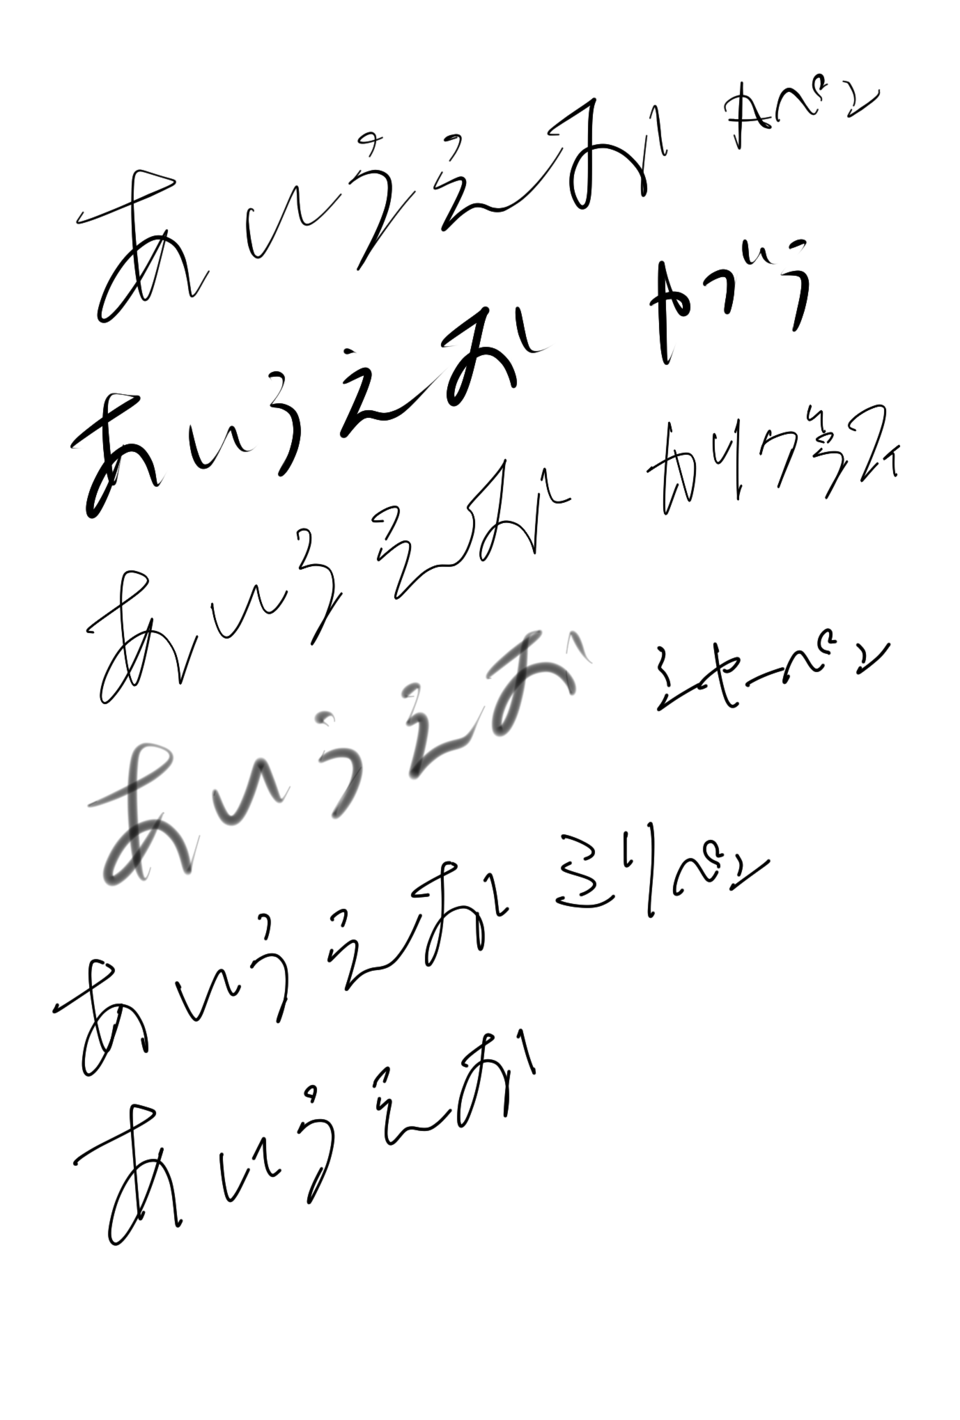 あいうえお Aペン
あいうえお カブラ
あいうえお カリグラフィ
あいうえお シャーペン
あいうえお ミリペン
あいうえお